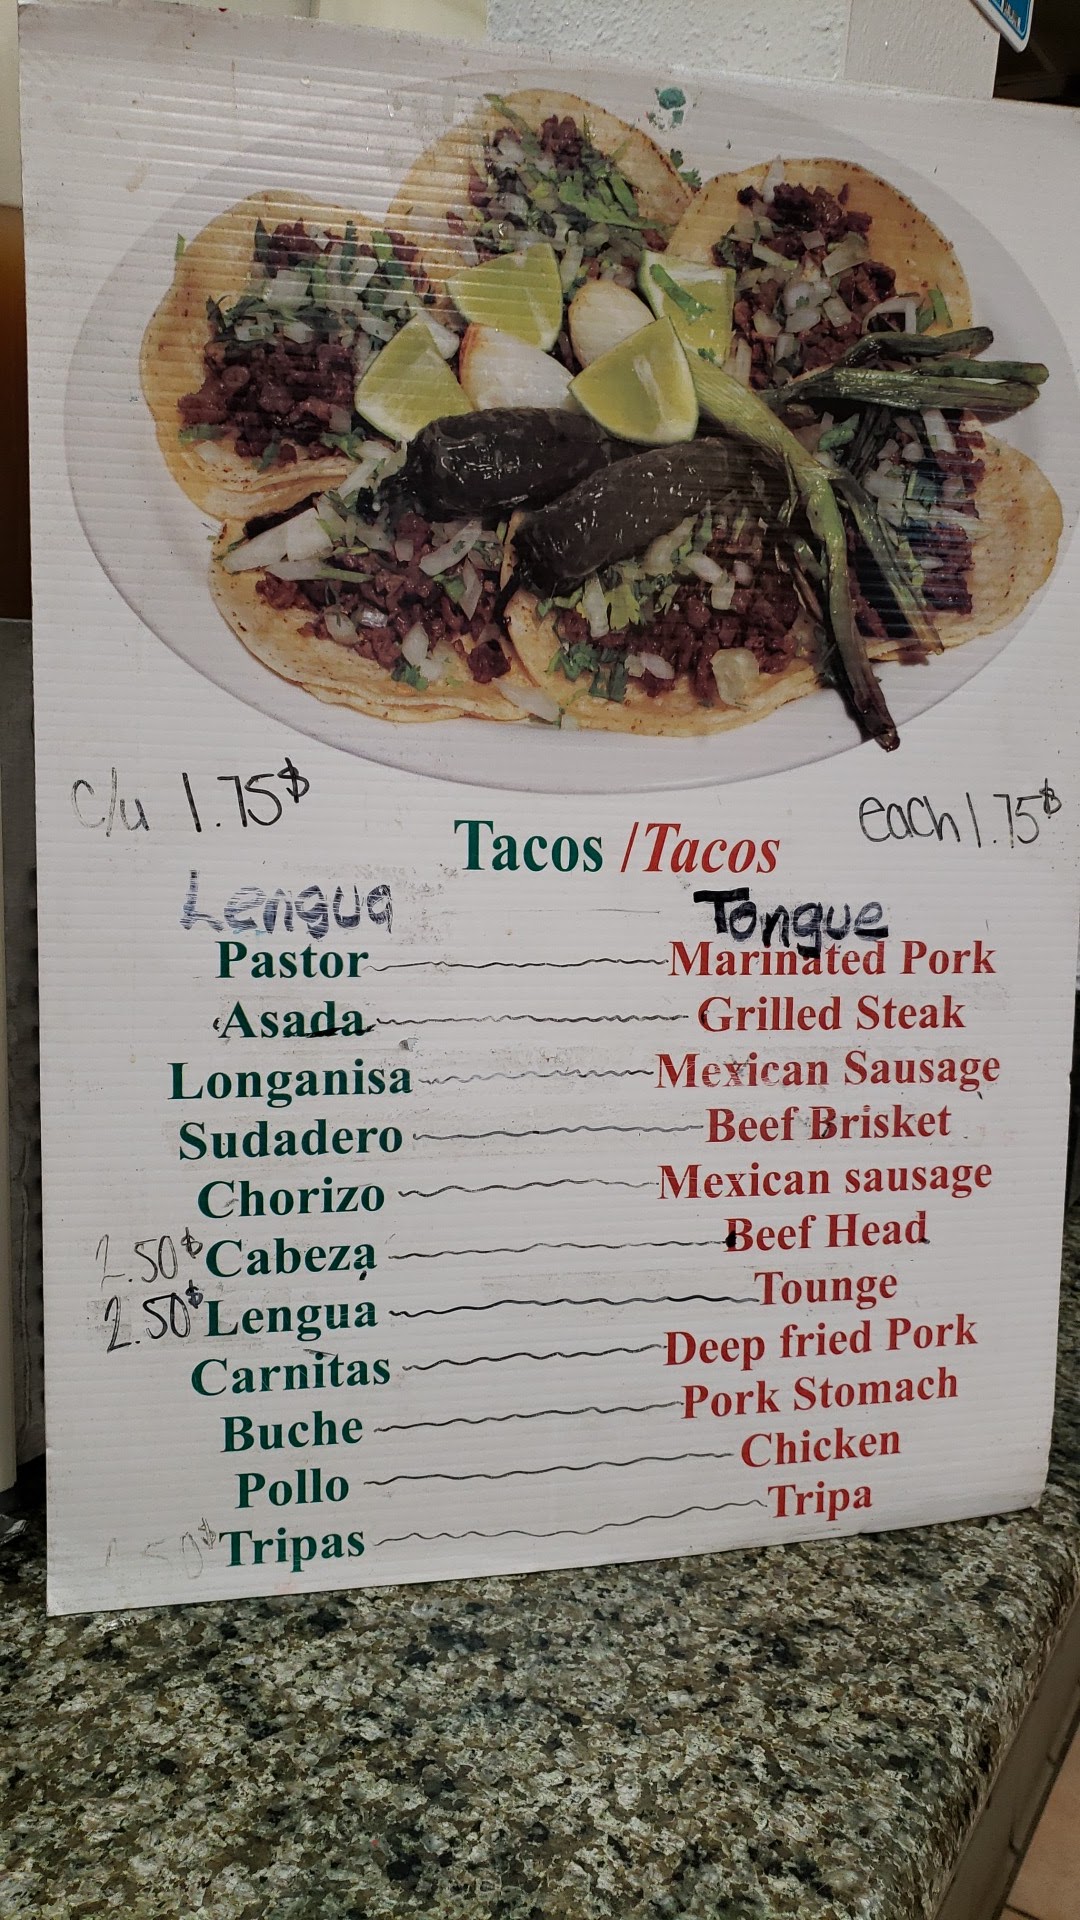 c/u 1.75$
each 1.75$
Tacos / Tacos
Lengua Tongue
Pastor Marinated Pork
Asada Grilled Steak
Longanisa Mexican Sausage
Sudadero Beef Brisket
Chorizo Mexican sausage
2.50$ Cabeza Beef Head
2.50$ Lengua Tounge
Carnitas Deep fried Pork
Buche Pork Stomach
Pollo Chicken
Tripas Tripa